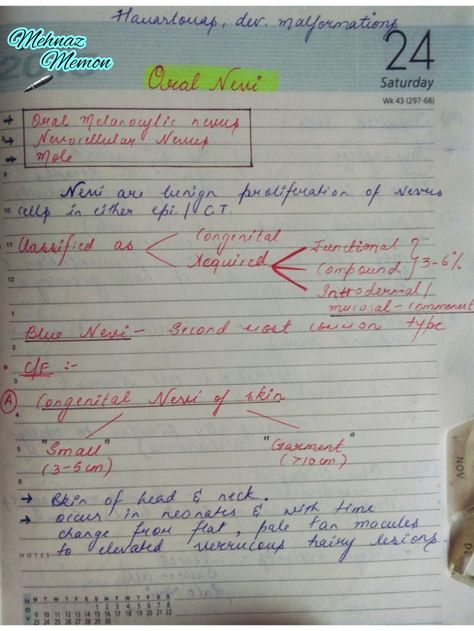 Hamartomas, dev. malformations
Mehnaz
Memon
24
Saturday
Wk 43 (297-68)
Oral Nevi
→ Oral Melanocytic nevus
→ Nevocellular Nevus
→ Mole
Nevi are benign proliferation of nevus
cells in either epi. / C.T.
Classified as
Congenital
Acquired
Junctional
Compound
3-6%
Intradermal /
mucosal - commonest
Blue Nevi - Second most common type
C/F :-
A Congenital Nevi of skin
"Small"
(3-5cm)
"Garment"
(>10cm)
→ Skin of head & neck.
→ occur in neonates & with time
change from flat, pale tan macules
to elevated verrucous hairy lesions.
NOTES
NOV